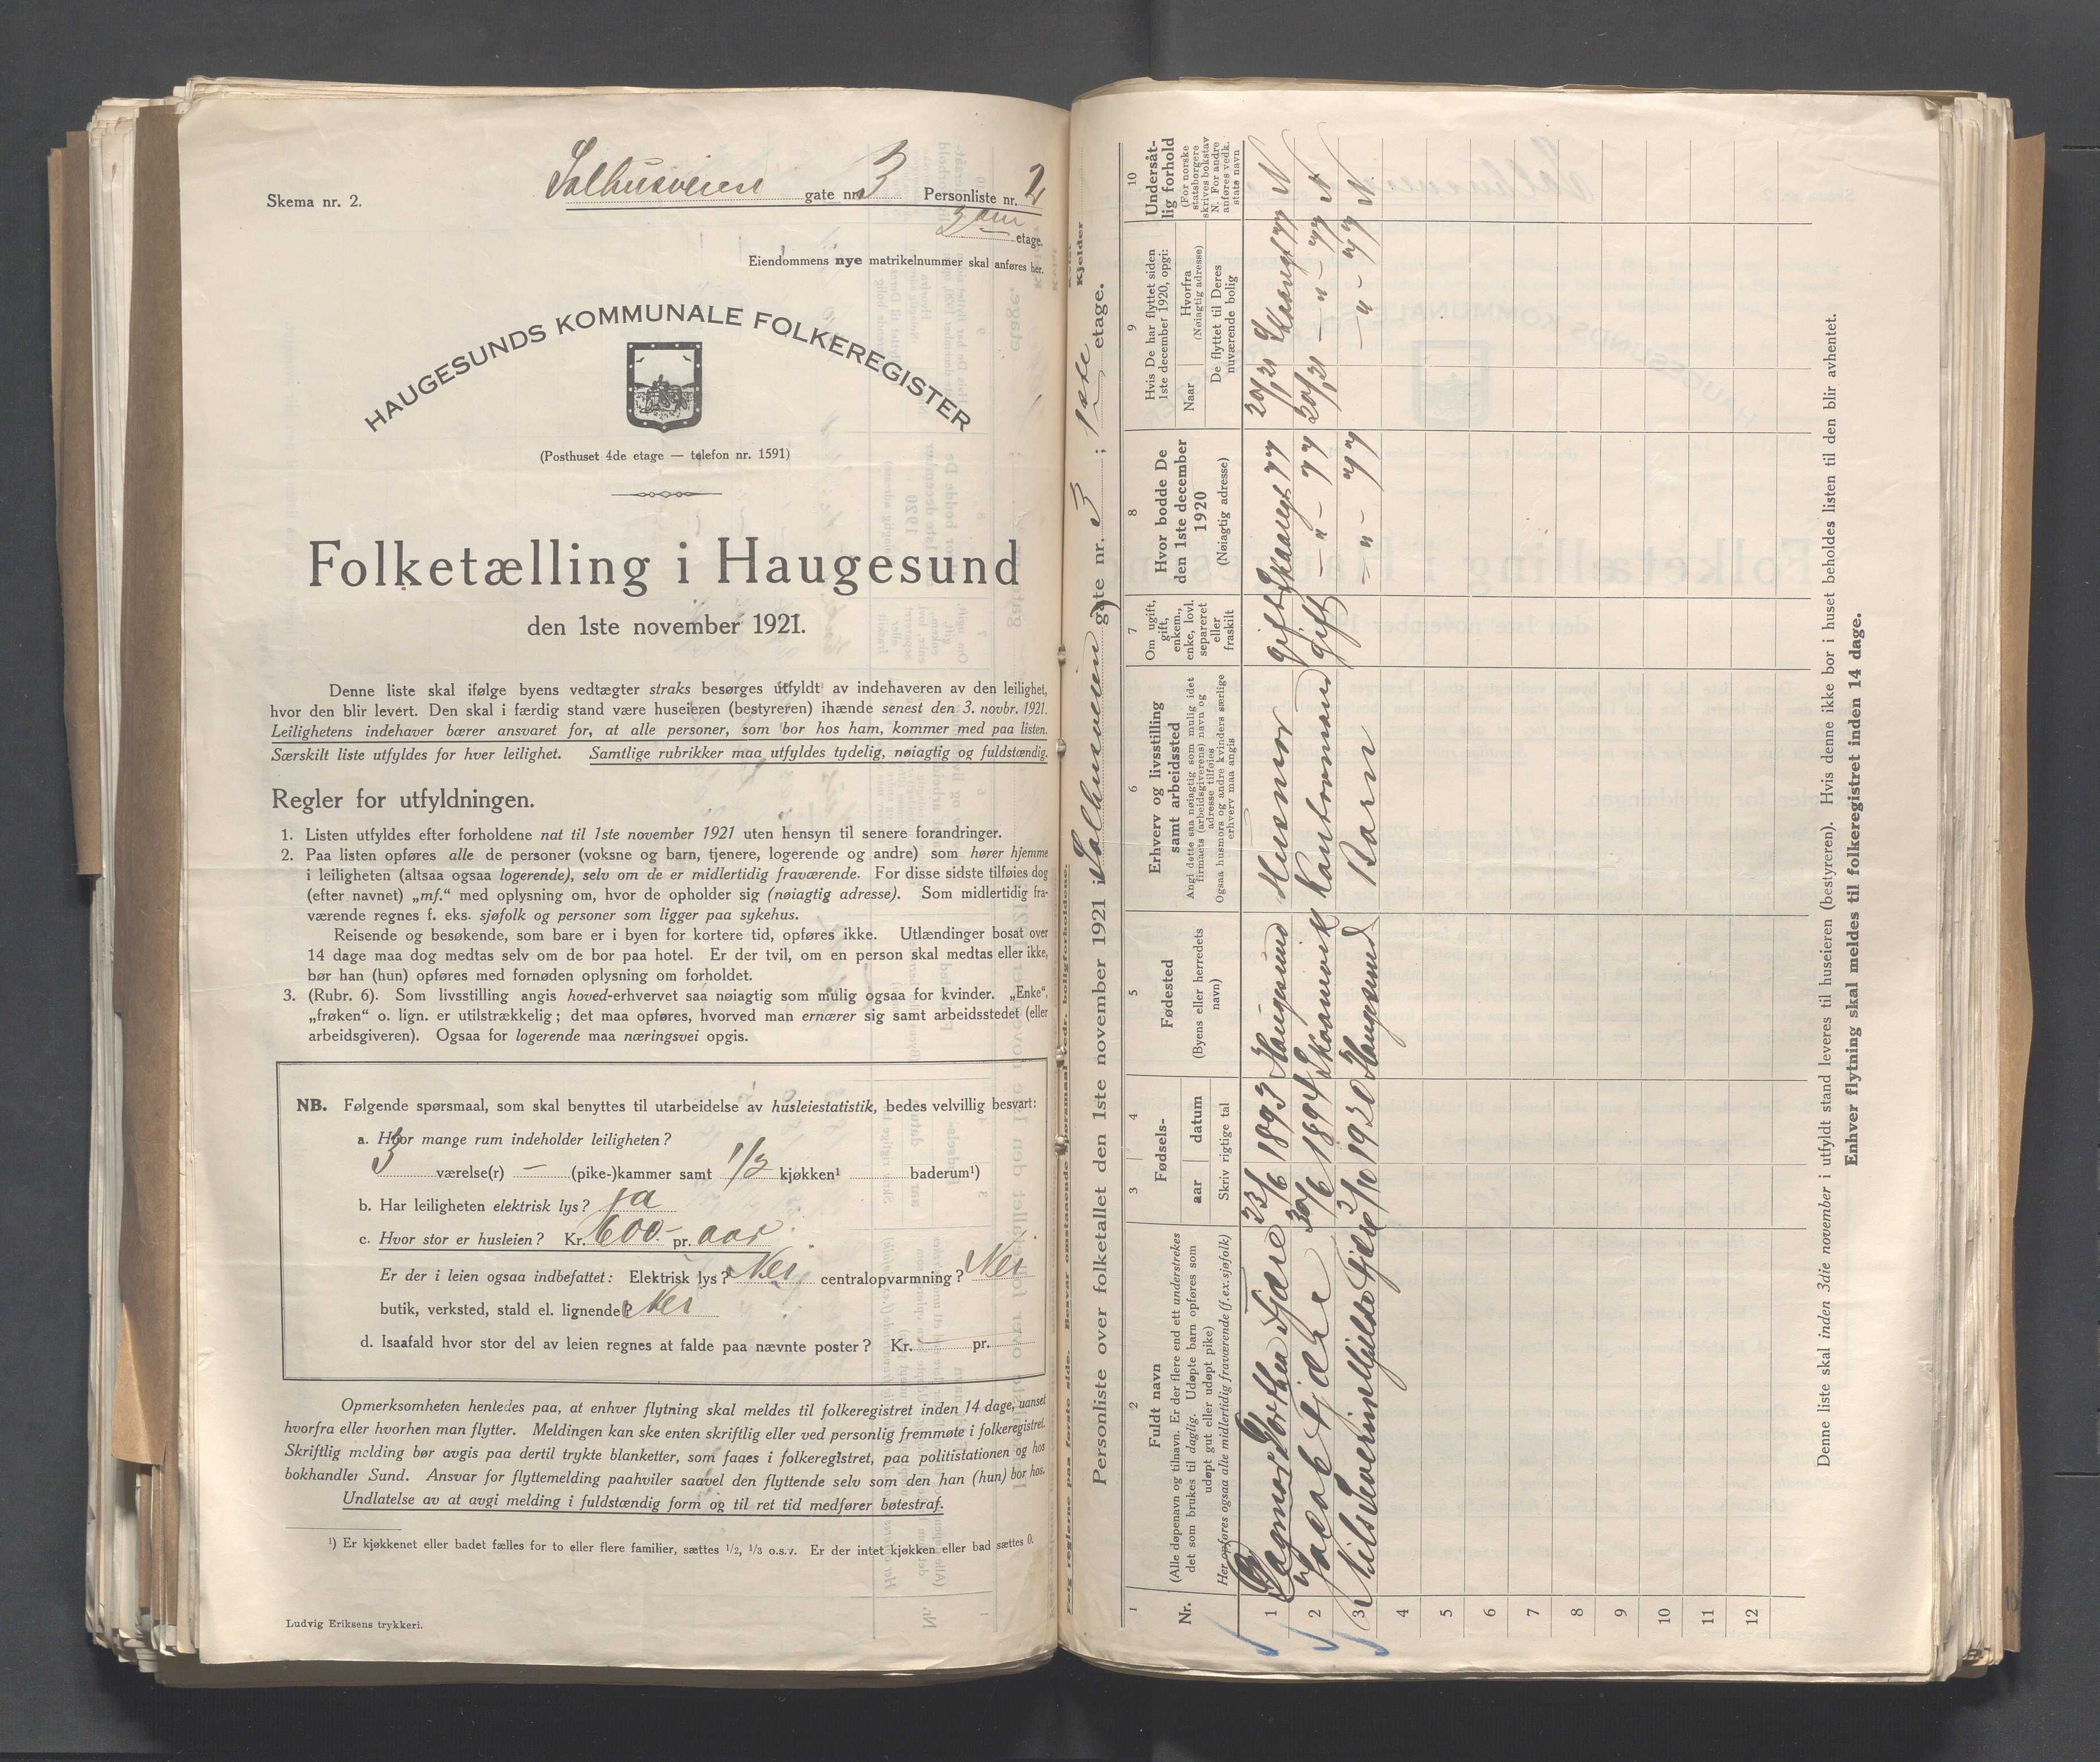 Skema nr. 2.
Salhusveien gate nr. 3 Personliste nr. 2
etage.
Eiendommens nye matrikelnummer skal anføres her.
HAUGESUNDS KOMMUNALE FOLKEREGISTER
(Posthuset 4de etage — telefon nr. 1591)
Folketælling i Haugesund
den 1ste november 1921.
Denne liste skal ifølge byens vedtægter straks besørges utfyldt av indehaveren av den leilighet,
hvor den blir levert. Den skal i færdig stand være huseieren (bestyreren) ihænde senest den 3. novbr. 1921.
Leilighetens indehaver bærer ansvaret for, at alle personer, som bor hos ham, kommer med paa listen.
Særskilt liste utfyldes for hver leilighet. Samtlige rubrikker maa utfyldes tydelig, nøiagtig og fuldstændig.
Regler for utfyldningen.
1. Listen utfyldes efter forholdene nat til 1ste november 1921 uten hensyn til senere forandringer.
2. Paa listen opføres alle de personer (voksne og barn, tjenere, logerende og andre) som hører hjemme
i leiligheten (altsaa ogsaa logerende), selv om de er midlertidig fraværende. For disse sidste tilføies dog
(efter navnet) „mf.“ med oplysning om, hvor de opholder sig (nøiagtig adresse). Som midlertidig fra-
værende regnes f. eks. sjøfolk og personer som ligger paa sykehus.
Reisende og besøkende, som bare er i byen for kortere tid, opføres ikke. Utlændinger bosat over
14 dage maa dog medtas selv om de bor paa hotel. Er der tvil, om en person skal medtas eller ikke,
bør han (hun) opføres med fornøden oplysning om forholdet.
3. (Rubr. 6). Som livsstilling angis hoved-erhvervet saa nøiagtig som mulig ogsaa for kvinder. „Enke“,
„frøken“ o. lign. er utilstrækkelig; det maa opføres, hvorved man ernærer sig samt arbeidsstedet (eller
arbeidsgiveren). Ogsaa for logerende maa næringsvei opgis.
NB. Følgende spørsmaal, som skal benyttes til utarbeidelse av husleiestatistik, bedes velvillig besvart:
a. Hvor mange rum indeholder leiligheten?
3 værelse(r) — (pike-)kammer samt 1/3 kjøkken¹ baderum¹)
b. Har leiligheten elektrisk lys? ja
c. Hvor stor er husleien? Kr. 600.- pr. aar
Er der i leien ogsaa indbefattet: Elektrisk lys? Nei centralopvarmning? Nei
butik, verksted, stald el. lignende? Nei
d. Isaafald hvor stor del av leien regnes at falde paa nævnte poster? Kr. — pr.
Opmerksomheten henledes paa, at enhver flytning skal meldes til folkeregistret inden 14 dage, uanset
hvorfra eller hvorhen man flytter. Meldingen kan ske enten skriftlig eller ved personlig fremmøte i folkeregistret.
Skriftlig melding bør avgis paa dertil trykte blanketter, som faaes i folkeregistret, paa politistationen og hos
bokhandler Sund. Ansvar for flyttemelding paahviler saavel den flyttende selv som den han (hun) bor hos.
Undlatelse av at avgi melding i fuldstændig form og til ret tid medfører bøtestraf.
¹) Er kjøkkenet eller badet fælles for to eller flere familier, sættes 1/2, 1/3 o.s.v. Er der intet kjøkken eller bad sættes 0.
Ludvig Eriksens trykkeri.
Kjelder
Personliste over folketallet den 1ste november 1921 i Salhusveien gate nr. 3 ; 1ste etage.
1 2 3 4 5 6 7 8 9 10
Nr.
Fuldt navn
(Alle døpenavn og tilnavn. Er der flere end ett understrekes
det som brukes til daglig. Udøpte barn opføres som
udøpt gut eller udøpt pike)
Her opføres ogsaa alle midlertidig fraværende (f.ex. sjøfolk)
Fødsels-
aar datum
Skriv rigtige tal
Fødested
(Byens eller herredets
navn)
Erhverv og livsstilling
samt arbeidssted
Angi dette saa nøiagtig som mulig idet
firmaets (arbeidsgiverens) navn og
adresse tilføies
Ogsaa husmors og andre kvinders særlige
erhverv maa angis
Om ugift,
gift,
enkem.,
enke, lovl.
separeret
eller
fraskilt
Hvor bodde De
den 1ste december
1920
(Nøiagtig adresse)
Hvis De har flyttet siden
1ste december 1920, opgi:
Naar
Hvorfra
(Nøiagtig adresse)
De flyttet til Deres
nuværende bolig
Undersåt-
lig forhold
(For norske
statsborgere
skrives bokstav
N. For andre
anføres vedk.
stats navn
1 Dagmar Dorthea Gjære 23/6 1893 Haugesund Husmor gift 77 20/1 21 77 N
2 Jacob Gjære 30/6 1894 Skaanevik Kontormand gift — " — 77 20/1 21 — " — 77 N
3 Nils Severin 2/10 1920 Haugesund Barn — " — 77 — " — 77 N.
4
5
6
7
8
9
10
11
12
Denne liste skal inden 3die november i utfyldt stand leveres til huseieren (bestyreren). Hvis denne ikke bor i huset beholdes listen til den blir avhentet.
Enhver flytning skal meldes til folkeregistret inden 14 dage.